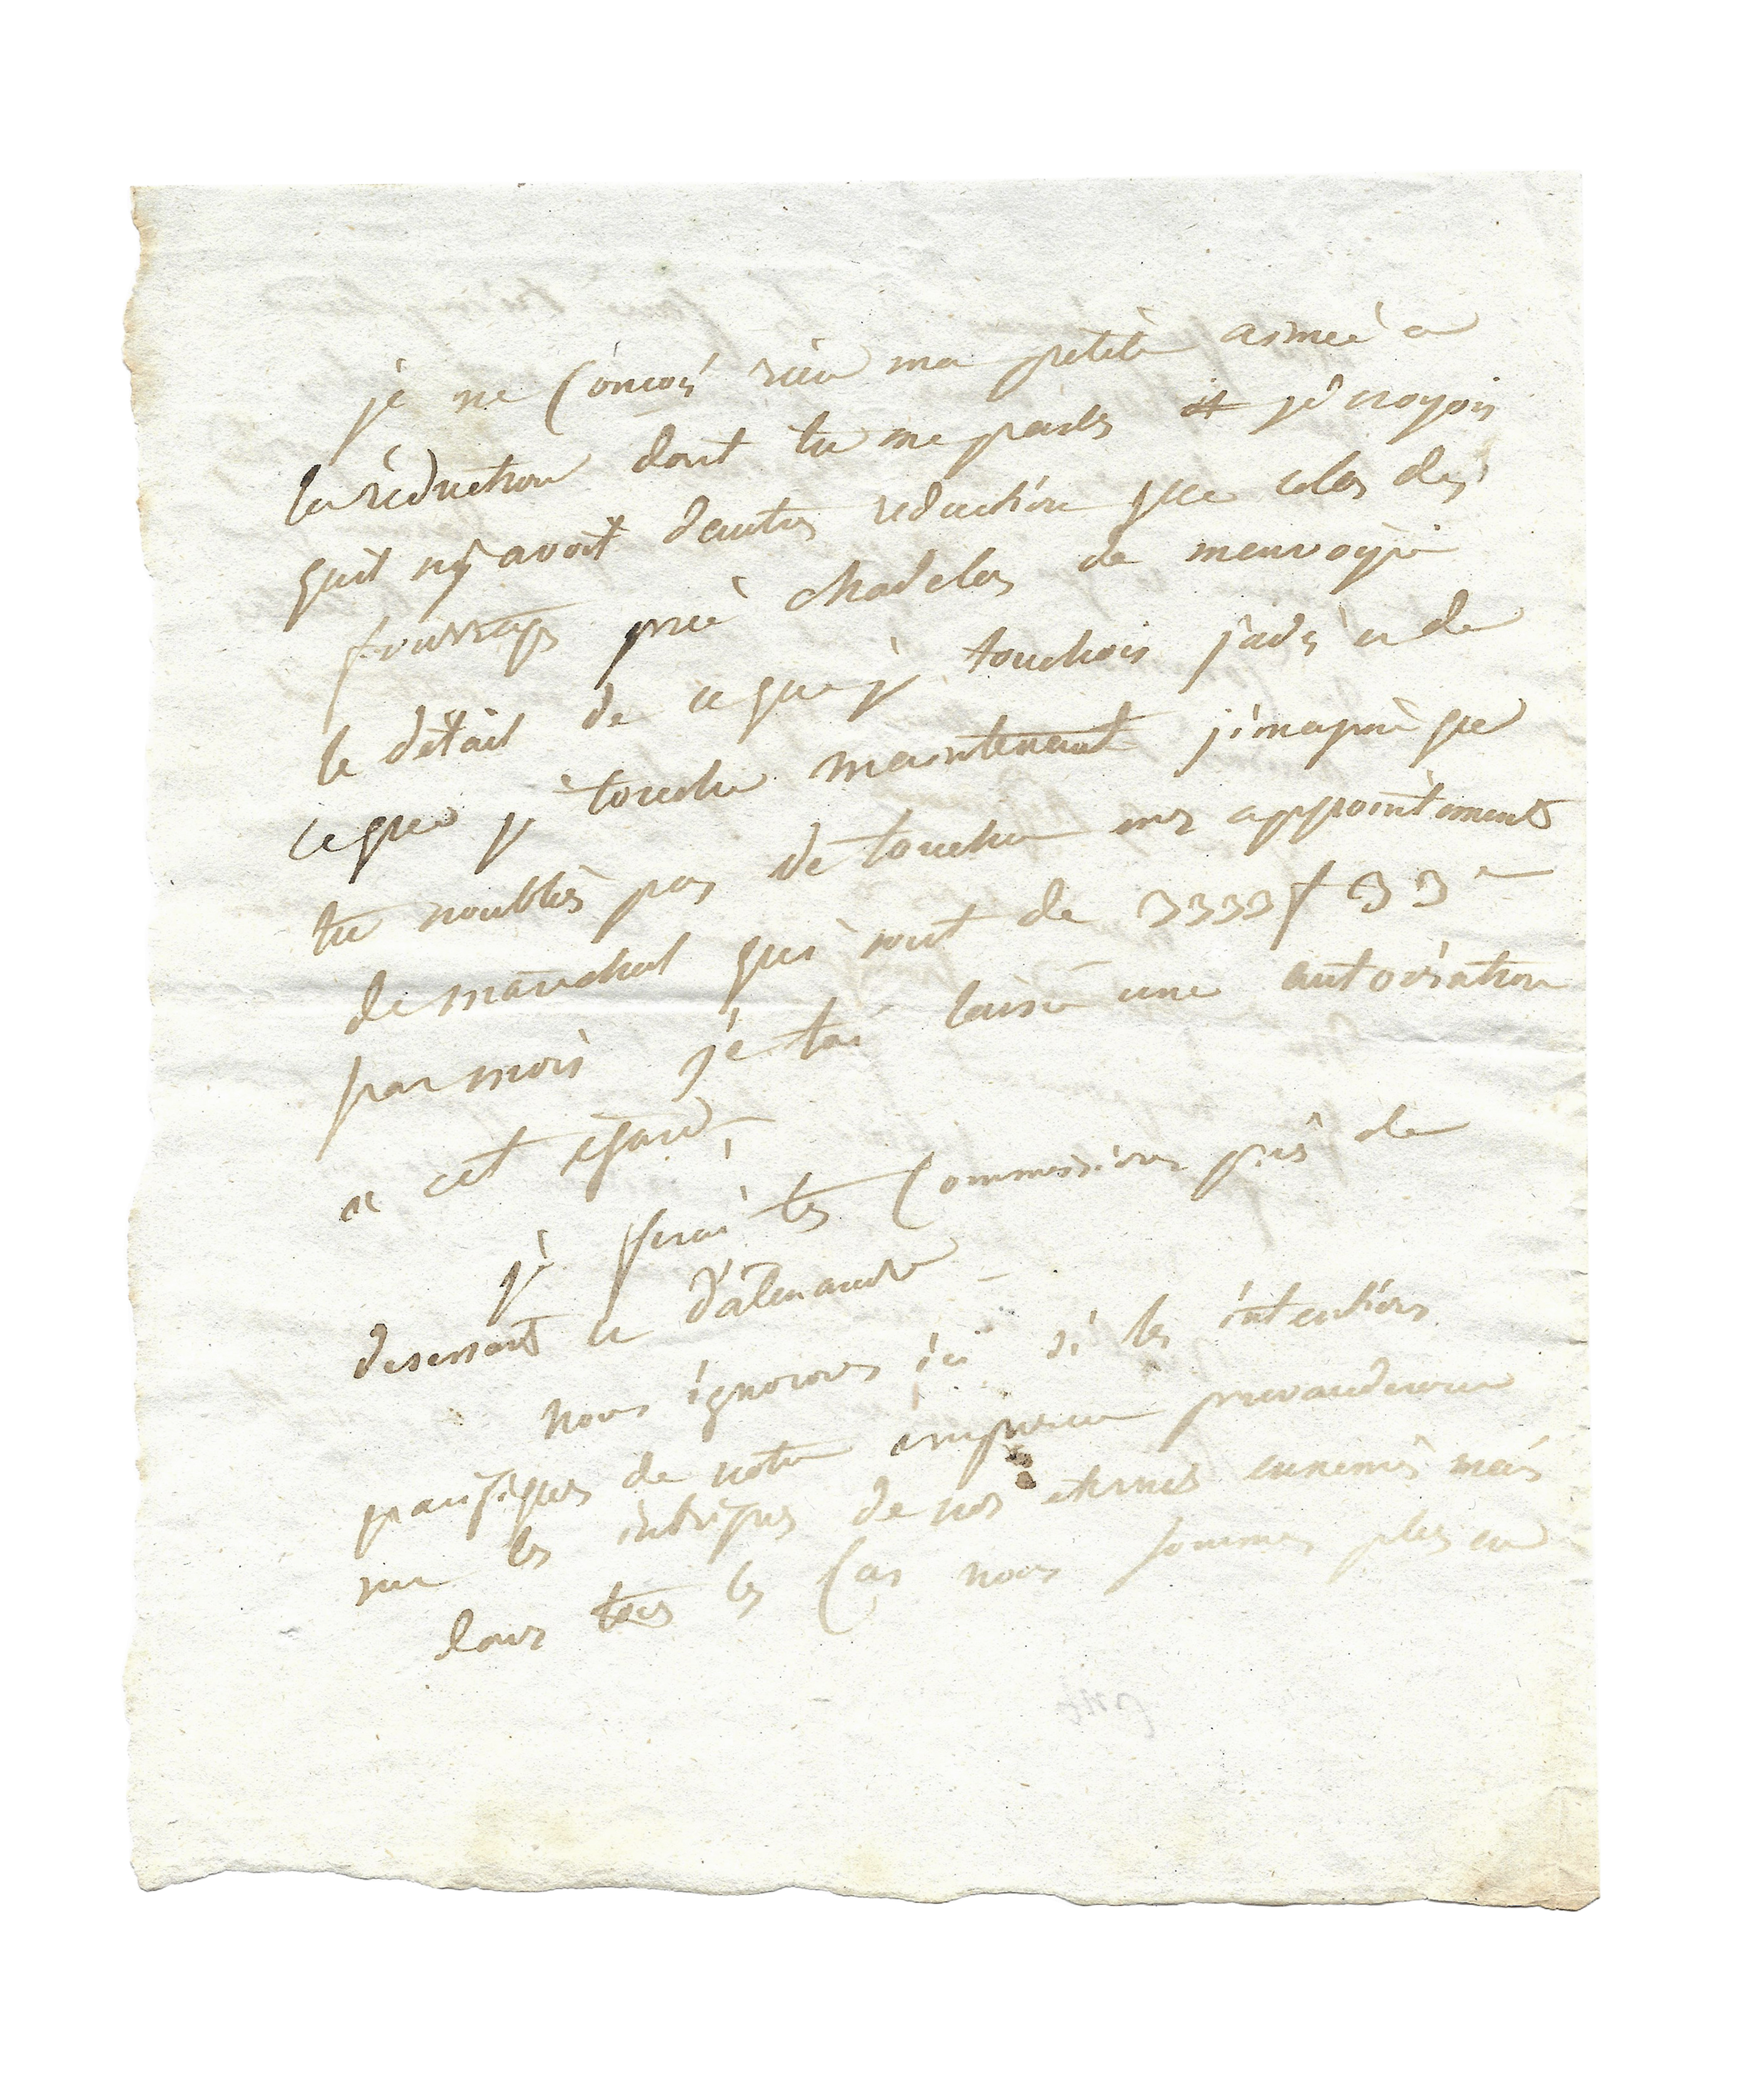 je ne conçois rien ma petite aimée a
la réduction dont tu me parles je croyois
quil ny avoit dautres reduction que celes des
fourrages prie chadelas de menvoyé
le détail de ce que je touchois jadis et de
ce que je touche maintenant j'imagine que
tu noublis pas de toucher mes appointements
de marechal qui sont de 3333f 33c
par mois je tai laissé une autorisation
a cet egard
je ferai tes commissions près de
desessart et d'alexandre
nous ignorons ici si les intentions
pacifiques de notre empereur prevauderont
sur les intrigues de nos eternels ennemis mais
dans tous les cas nous sommes plus en